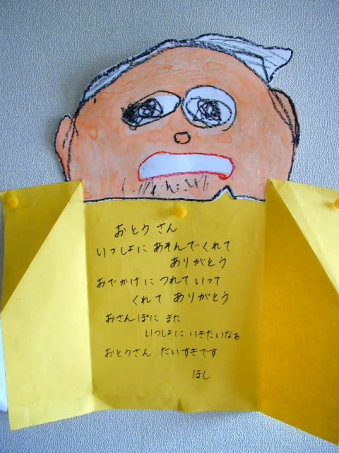 おとうさん
いっしょに あそんでくれて
ありがとう
おでかけに つれていって
くれて ありがとう
おさんぽに また
いっしょに いきたいなぁ
おとうさん だいすきです
ほし